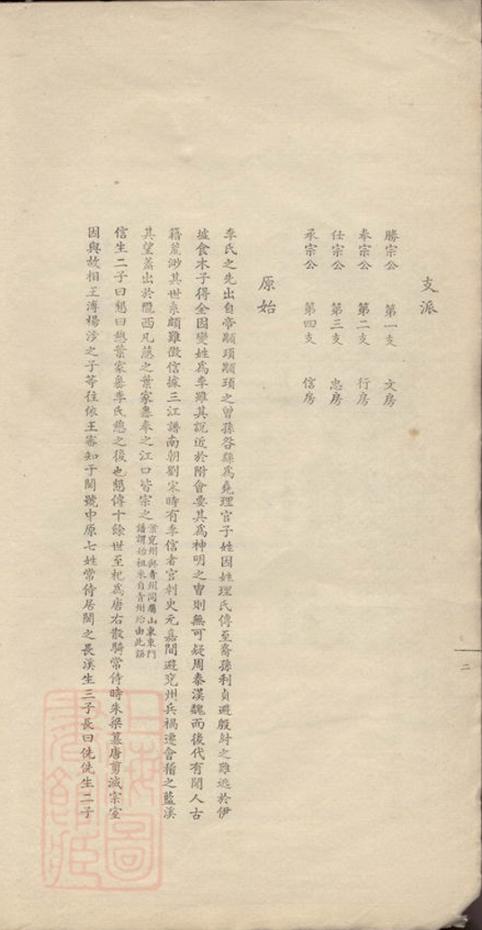 支派
勝宗公　第一支　文房
奉宗公　第二支　行房
仕宗公　第三支　忠房
承宗公　第四支　信房
原始
李氏之先出自帝顓頊顓頊之曾孫咎繇為堯理官子姓因姓理氏傳至裔孫利貞避殷紂之難逃於伊
墟食木子得全因變姓為李雖其說近於附會要其為神明之胄則無可疑周秦漢魏而後代有聞人古
籍荒渺其世系頗難徵信據三江譜南朝劉宋時有李信者官刺史元嘉間避兗州兵禍遷會稽之藍溪
其望蓋出於隴西凡慈之葉家嶴奉之江口皆宗之當兗州與青州同屬山東東門
譜謂始祖來自青州殆由此誤
信生二子曰懇曰趙葉家嶴李氏懇之後也懇傳十餘世至杞為唐右散騎常侍時朱梁篡唐剪滅宗室
因與故相王溥楊涉之子等往依王審知于閩號中原七姓常侍居閩之長溪生三子長曰侁侁生二子
二
上海圖書館藏